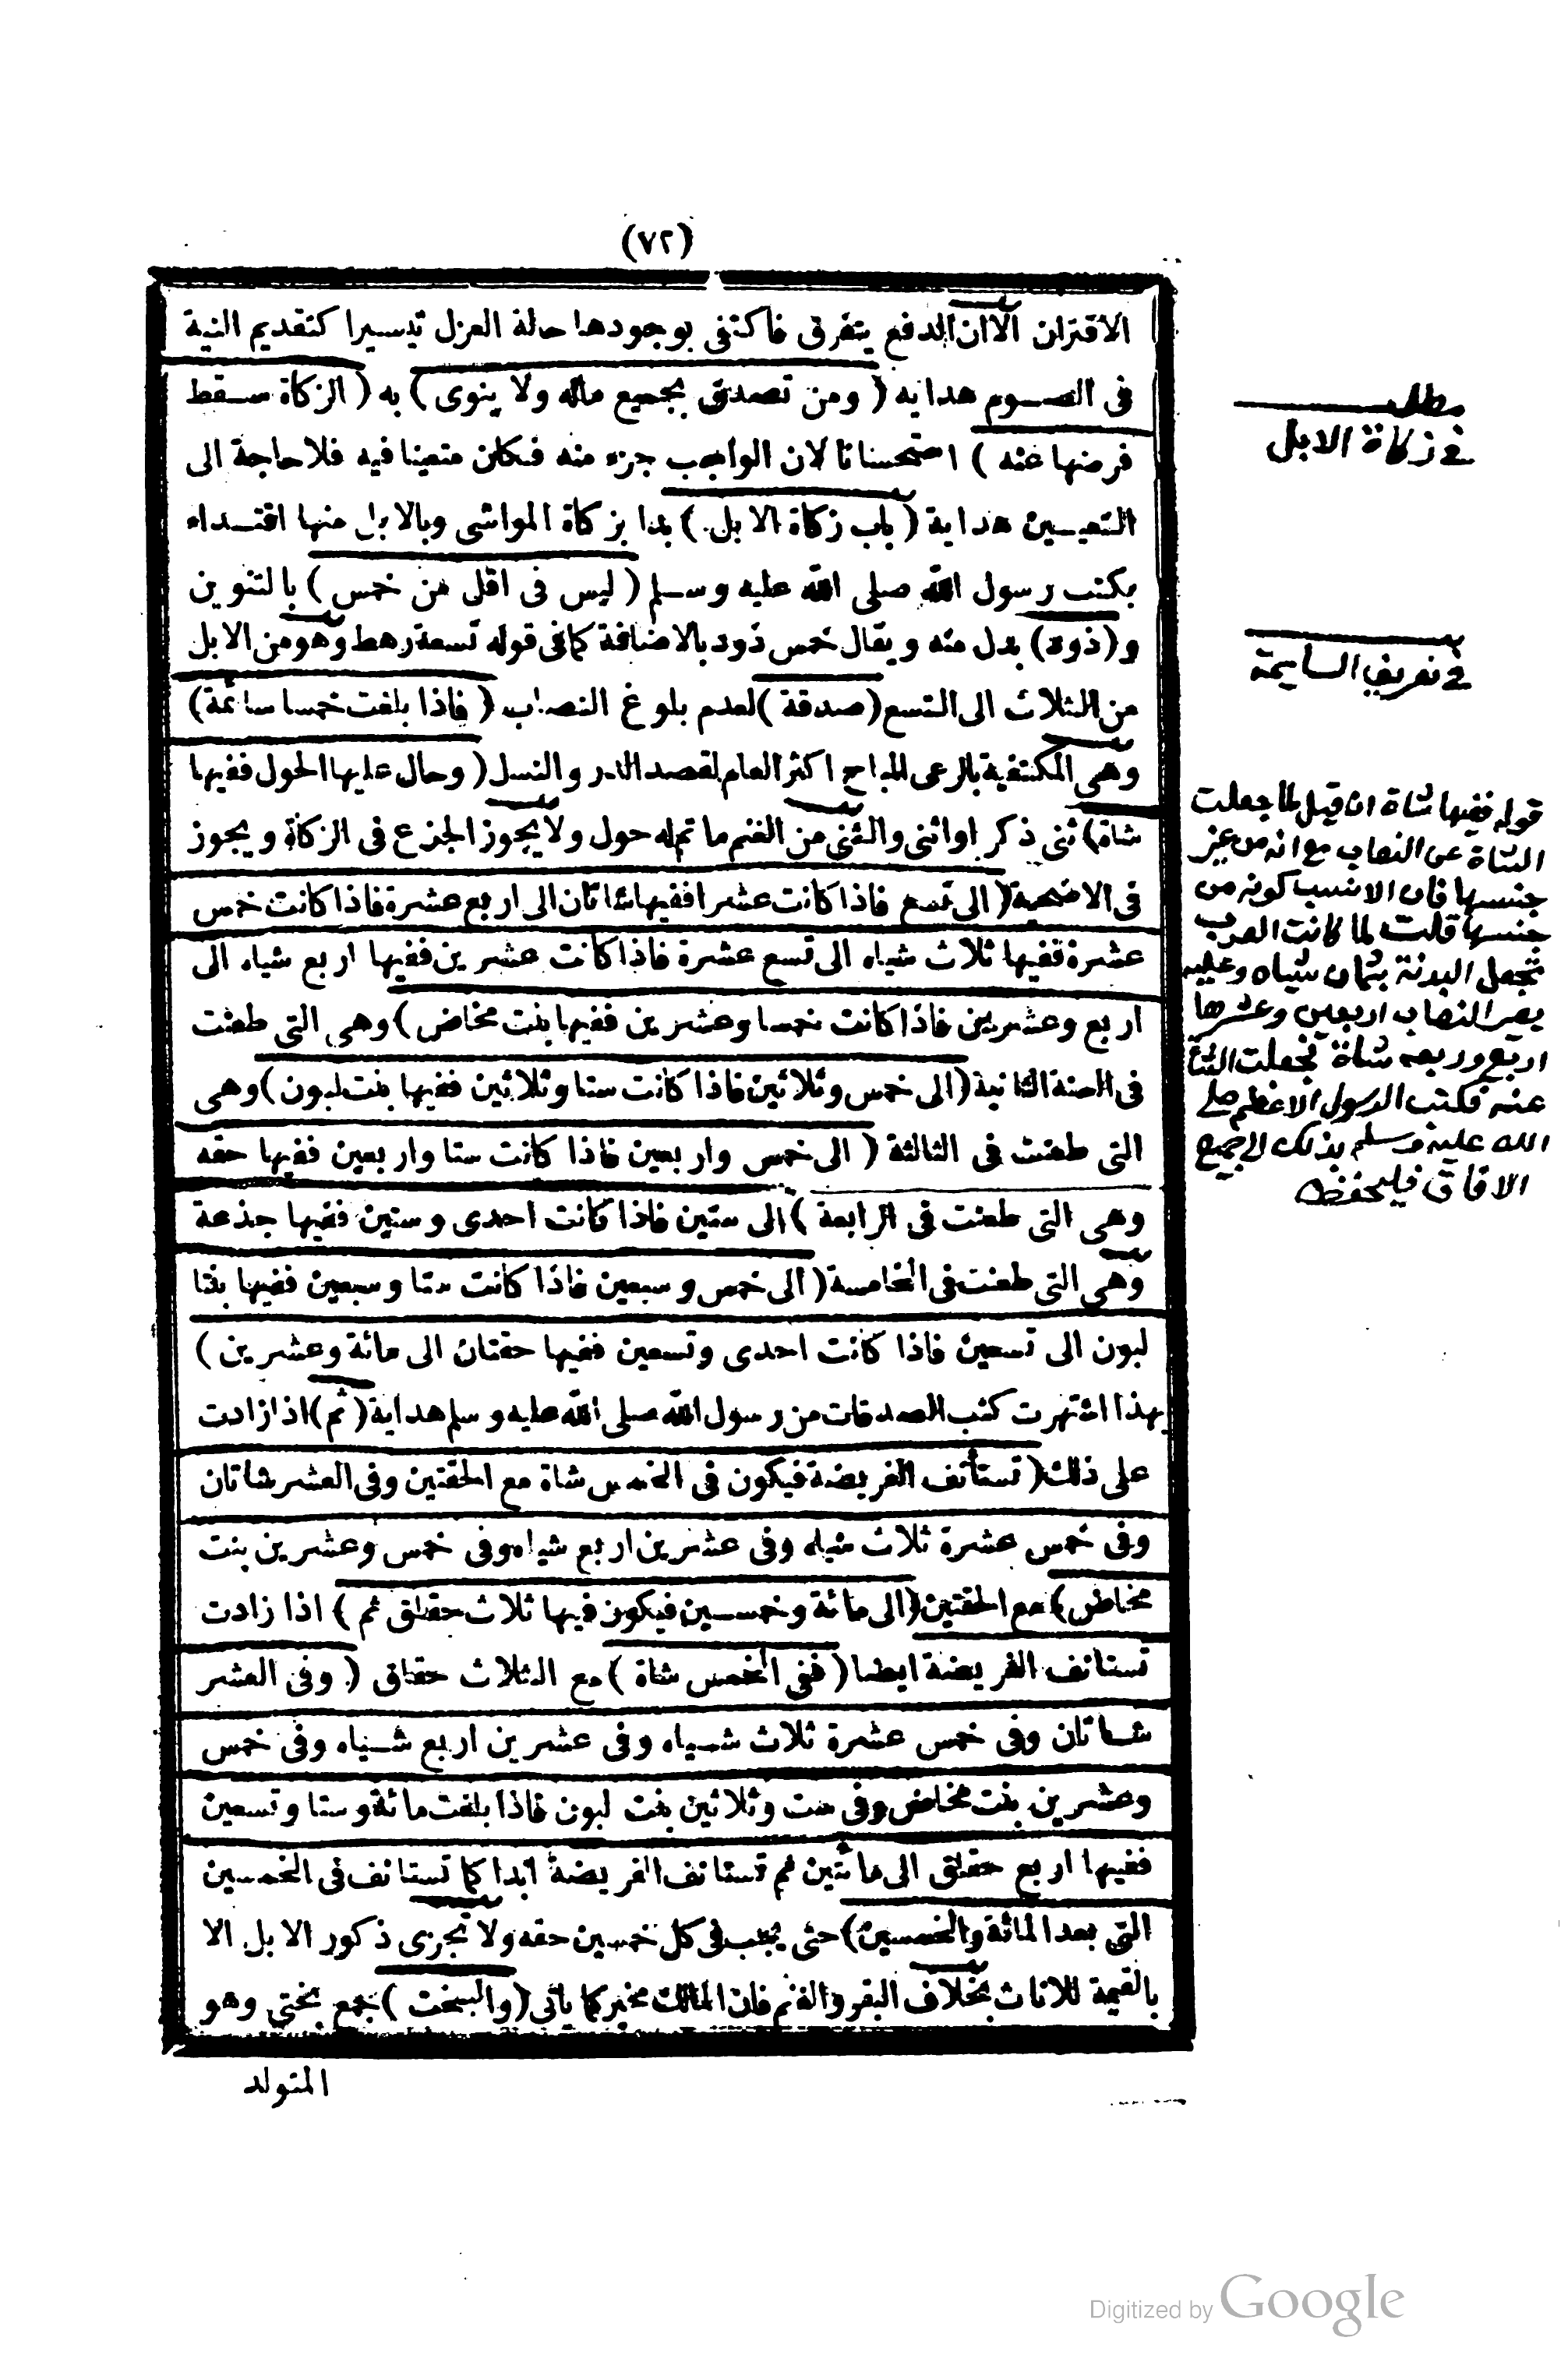 (٧٢)
الاقتران الا ان الدفع يتفرق فاكتفى بوجودها حالة العزل تيسيرا كتقديم النية
فى الصوم هدايه (ومن تصدق بجميع ماله ولا ينوى) به (الزكاة سقط
فرضها عنه) استحسانا لان الواجب جزء منه فكان متعينا فيه فلا حاجة الى
التعيين هداية (باب زكاة الابل) بدا بزكاة المواشى وبالابل منها اقتداء
بكتب رسول الله صلى الله عليه وسلم (ليس فى اقل من خمس) بالتنوين
و(ذود) بدل منه ويقال خمس ذود بالاضافة كما فى قوله تسعة رهط وهو من الابل
من الثلاث الى التسع (صدقة) لعدم بلوغ النصاب (فاذا بلغت خمسا سائمة)
وهى المكتفية بالرعى المباح اكثر العام لقصد الدر والنسل (وحال عليها الحول ففيها
شاة) ثنى ذكر او انثى والثنى من الغنم ما تم له حول ولا يجوز الجزع فى الزكاة ويجوز
فى الاضحية (الى تسع فاذا كانت عشرا ففيها شاتان الى اربع عشرة فاذا كانت خمس
عشرة ففيها ثلاث شياه الى تسع عشرة فاذا كانت عشرين ففيها اربع شياه الى
اربع وعشرين فاذا كانت خمسا وعشرين ففيها بنت مخاض) وهى التى طعنت
فى السنة الثانية (الى خمس وثلاثين فاذا كانت ستا وثلاثين ففيها بنت لبون) وهى
التى طعنت فى الثالثة (الى خمس واربعين فاذا كانت ستا واربعين ففيها حقه
وهى التى طعنت فى الرابعة) الى ستين فاذا كانت احدى وستين ففيها جذعة
وهى التى طعنت فى الخامسة (الى خمس وسبعين فاذا كانت ستا وسبعين ففيها بنتا
لبون الى تسعين فاذا كانت احدى وتسعين ففيها حقتان الى مائة وعشرين)
بهذا اشتهرت كتب الصدقات من رسول الله صلى الله عليه وسلم هداية (ثم) اذا زادت
على ذلك (تستأنف الفريضة فيكون فى الخمس شاة مع الحقتين وفى العشر شاتان
وفى خمس عشرة ثلاث شياه وفى عشرين اربع شياه وفى خمس وعشرين بنت
مخاض) مع الحقتين (الى مائة وخمسين فيكون فيها ثلاث حقاق ثم) اذا زادت
تستانف الفريضة ايضا (ففى الخمس شاة) مع الثلاث حقاق (وفى العشر
شاتان وفى خمس عشرة ثلاث شياه وفى عشرين اربع شياه وفى خمس
وعشرين بنت مخاض وفى ست وثلاثين بنت لبون فاذا بلغت مائة وستا وتسعين
ففيها اربع حقاق الى مائتين ثم تستانف الفريضة ابدا كما تستانف فى الخمسين
التى بعد المائة والخمسين) حتى يجب فى كل خمسين حقه ولا تجزى ذكور الابل الا
بالقيمة للاناث بخلاف البقر والغنم فان المالك مخير كما يأتى (والبخت) جمع بختى وهو
المتولد
مطلب
فى زكاة الابل
فى تعريف السايمة
قوله ففيها شاة ان قيل لما جعلت
الشاة عن النصاب مع انه من غير
جنسها فان الانسب كونه من
جنسها قلت لما كانت العرب
تجعل البدنة بثمان شياه وعليه
يصير النصاب اربعين وعشرها
اربع وربعه شاة فجعلت الشاة
عنه فكتب الرسول الاعظم صلى
الله عليه وسلم بذلك الى جميع
الافاق فليحفظ
Digitized by Google